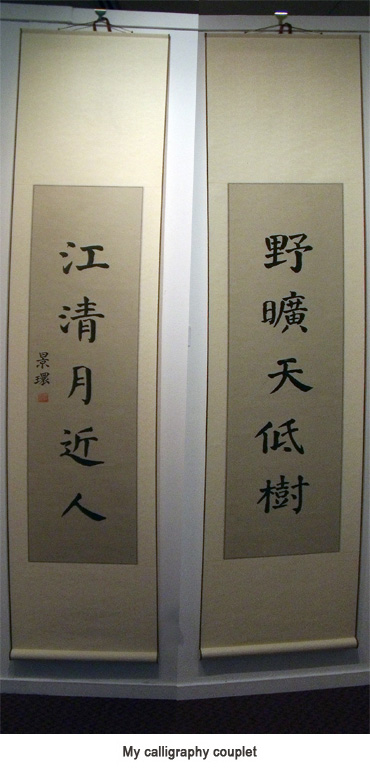 野曠天低樹
江清月近人
景環
My calligraphy couplet